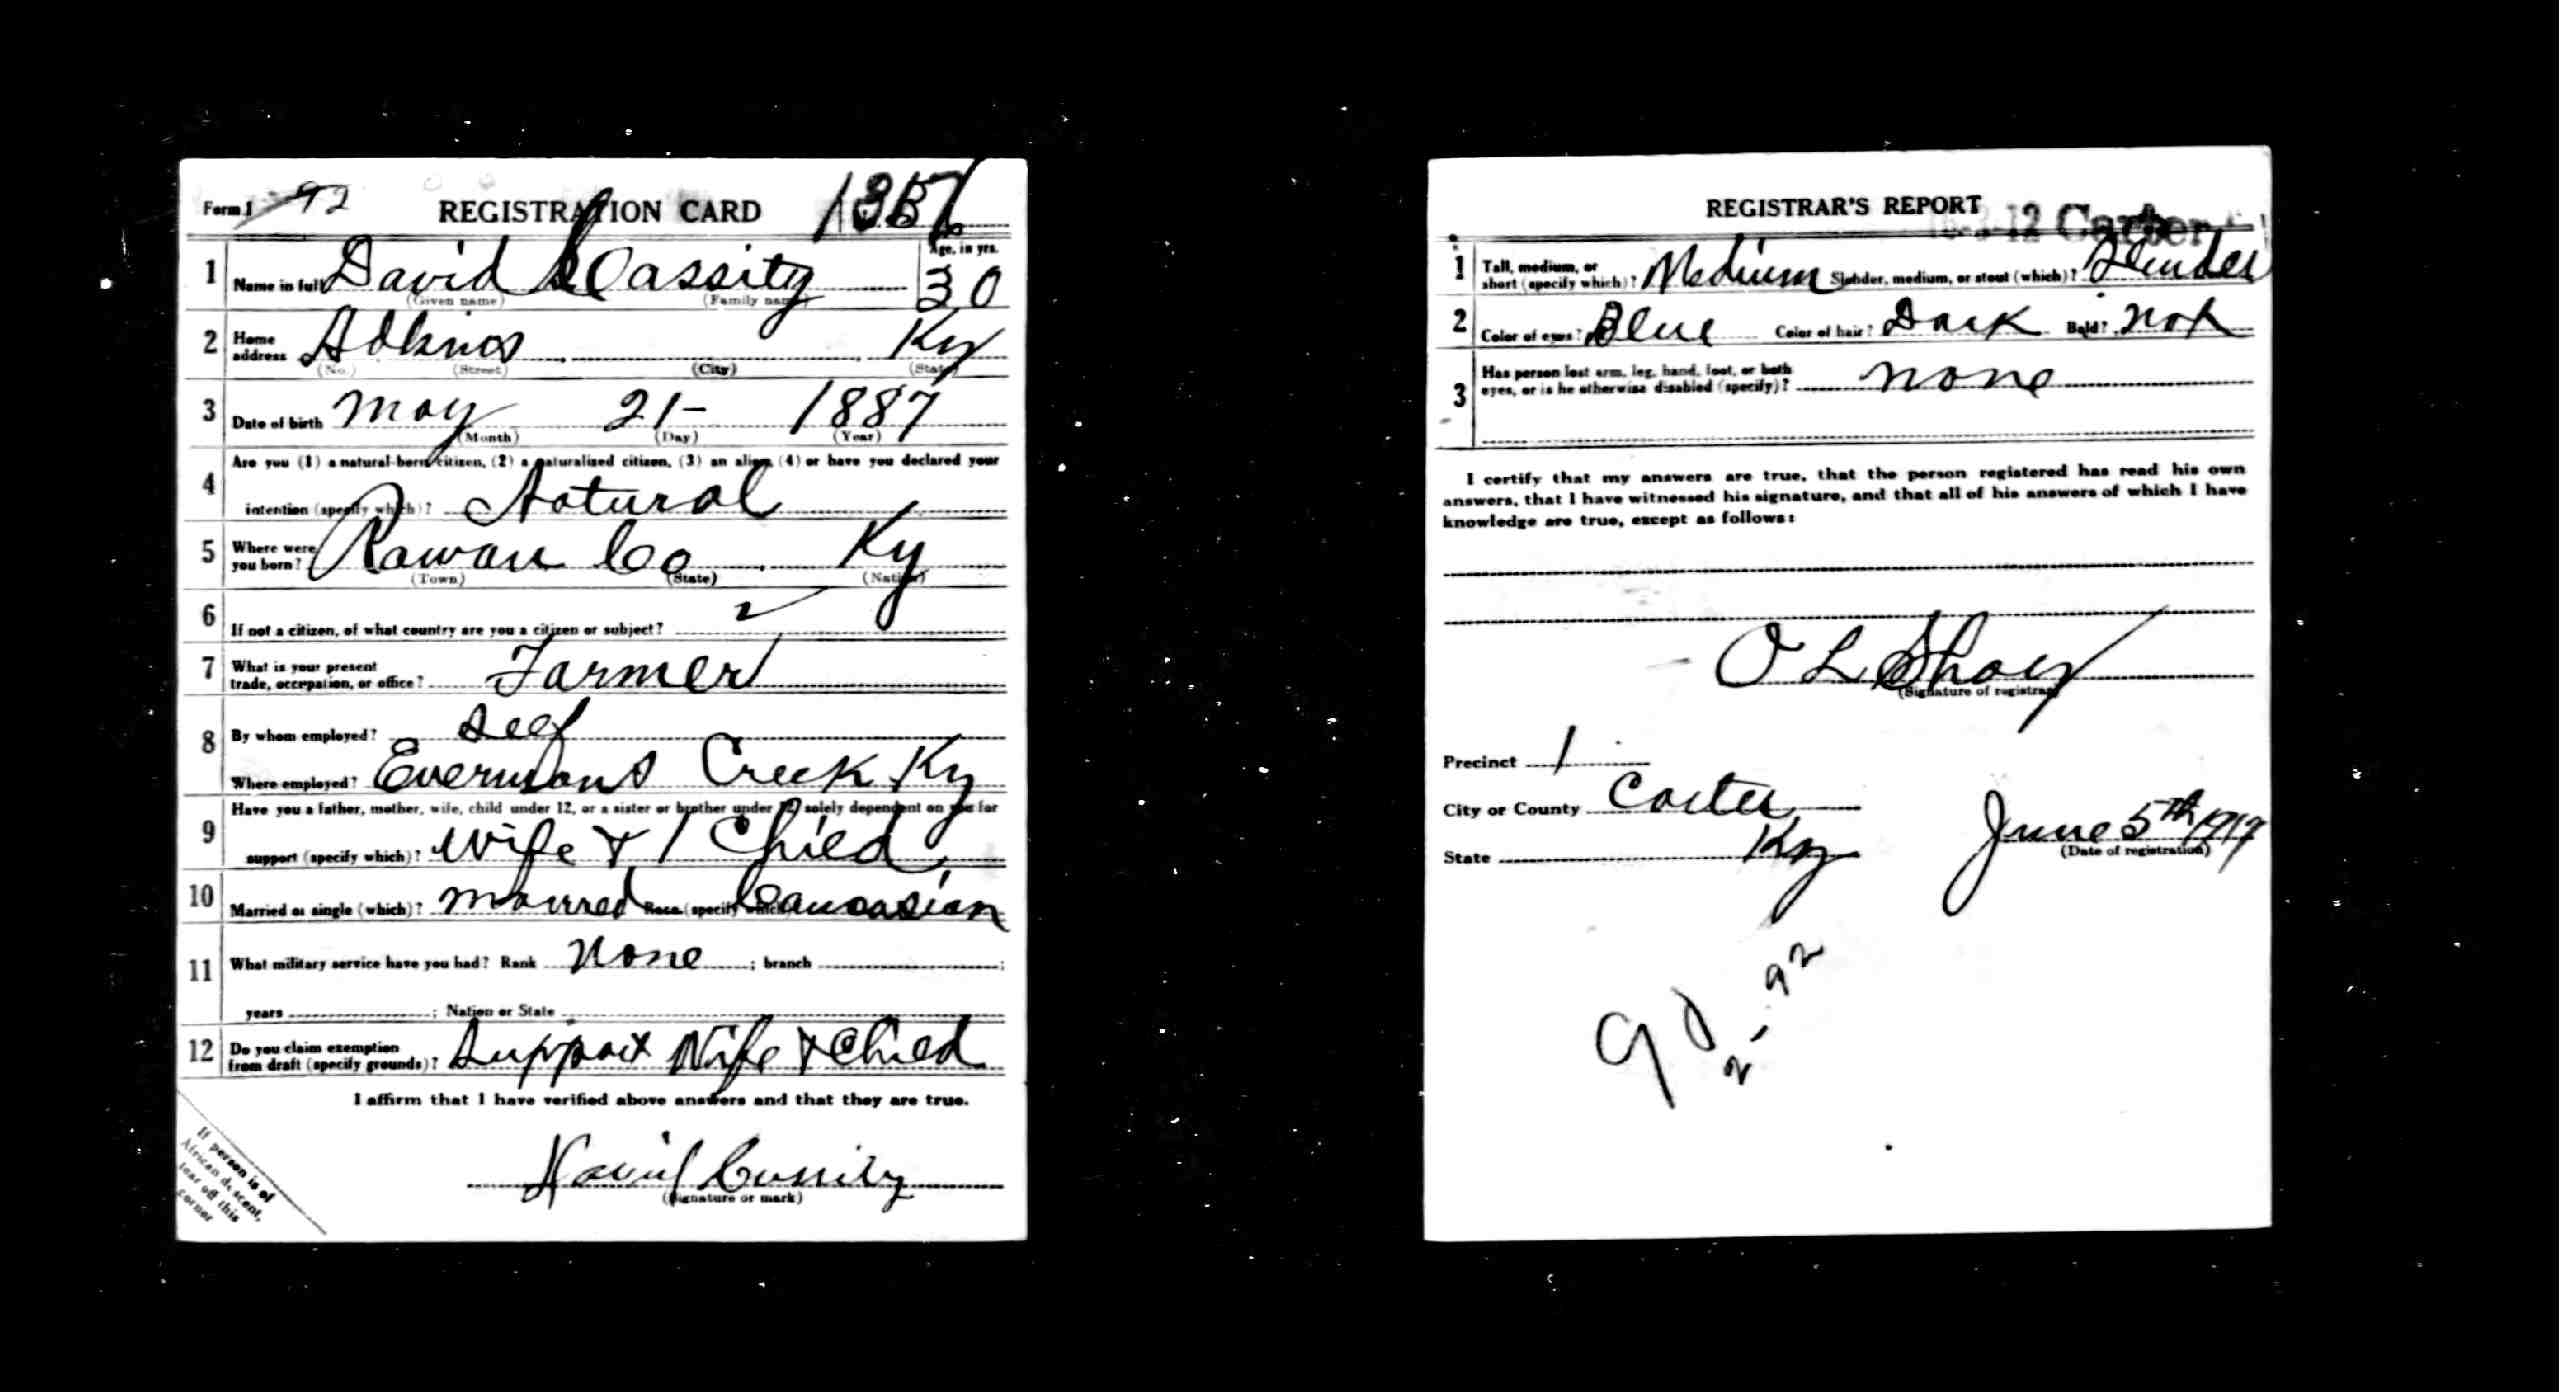 Form 1 92 REGISTRATION CARD
1 Name in full David Cassity Age, in yrs. 30
(Given name) (Family name)
2 Home address Adkins Ky
(No.) (Street) (City) (State)
3 Date of birth May 21- 1887
(Month) (Day) (Year)
4 Are you (1) a natural-born citizen, (2) a naturalized citizen, (3) an alien, (4) or have you declared your
intention (specify which)? Natural
5 Where were you born? Rowan Co Ky
(Town) (State) (Nation)
6 If not a citizen, of what country are you a citizen or subject?
7 What is your present trade, occupation, or office? Farmer
8 By whom employed? Self
Where employed? Evermans Creek Ky
9 Have you a father, mother, wife, child under 12, or a sister or brother under 12, solely dependent on you for
support (specify which)? Wife & 1 Child
10 Married or single (which)? Married Race (specify which)? Caucasian
11 What military service have you had? Rank None ; branch ;
years ; Nation or State
12 Do you claim exemption from draft (specify grounds)? Support Wife & Child
I affirm that I have verified above answers and that they are true.
David Cassity
(Signature or mark)
If person is of
African descent,
tear off this
corner
REGISTRAR'S REPORT
Carter
1 Tall, medium, or short (specify which)? Medium Slender, medium, or stout (which)? Slender
2 Color of eyes? Blue Color of hair? Dark Bald? Not
3 Has person lost arm, leg, hand, foot, or both
eyes, or is he otherwise disabled (specify)? None
I certify that my answers are true, that the person registered has read his own
answers, that I have witnessed his signature, and that all of his answers of which I have
knowledge are true, except as follows:
O L
(Signature of registrar)
Precinct 1
City or County Carter
State Ky June 5th 1917
(Date of registration)
2-92